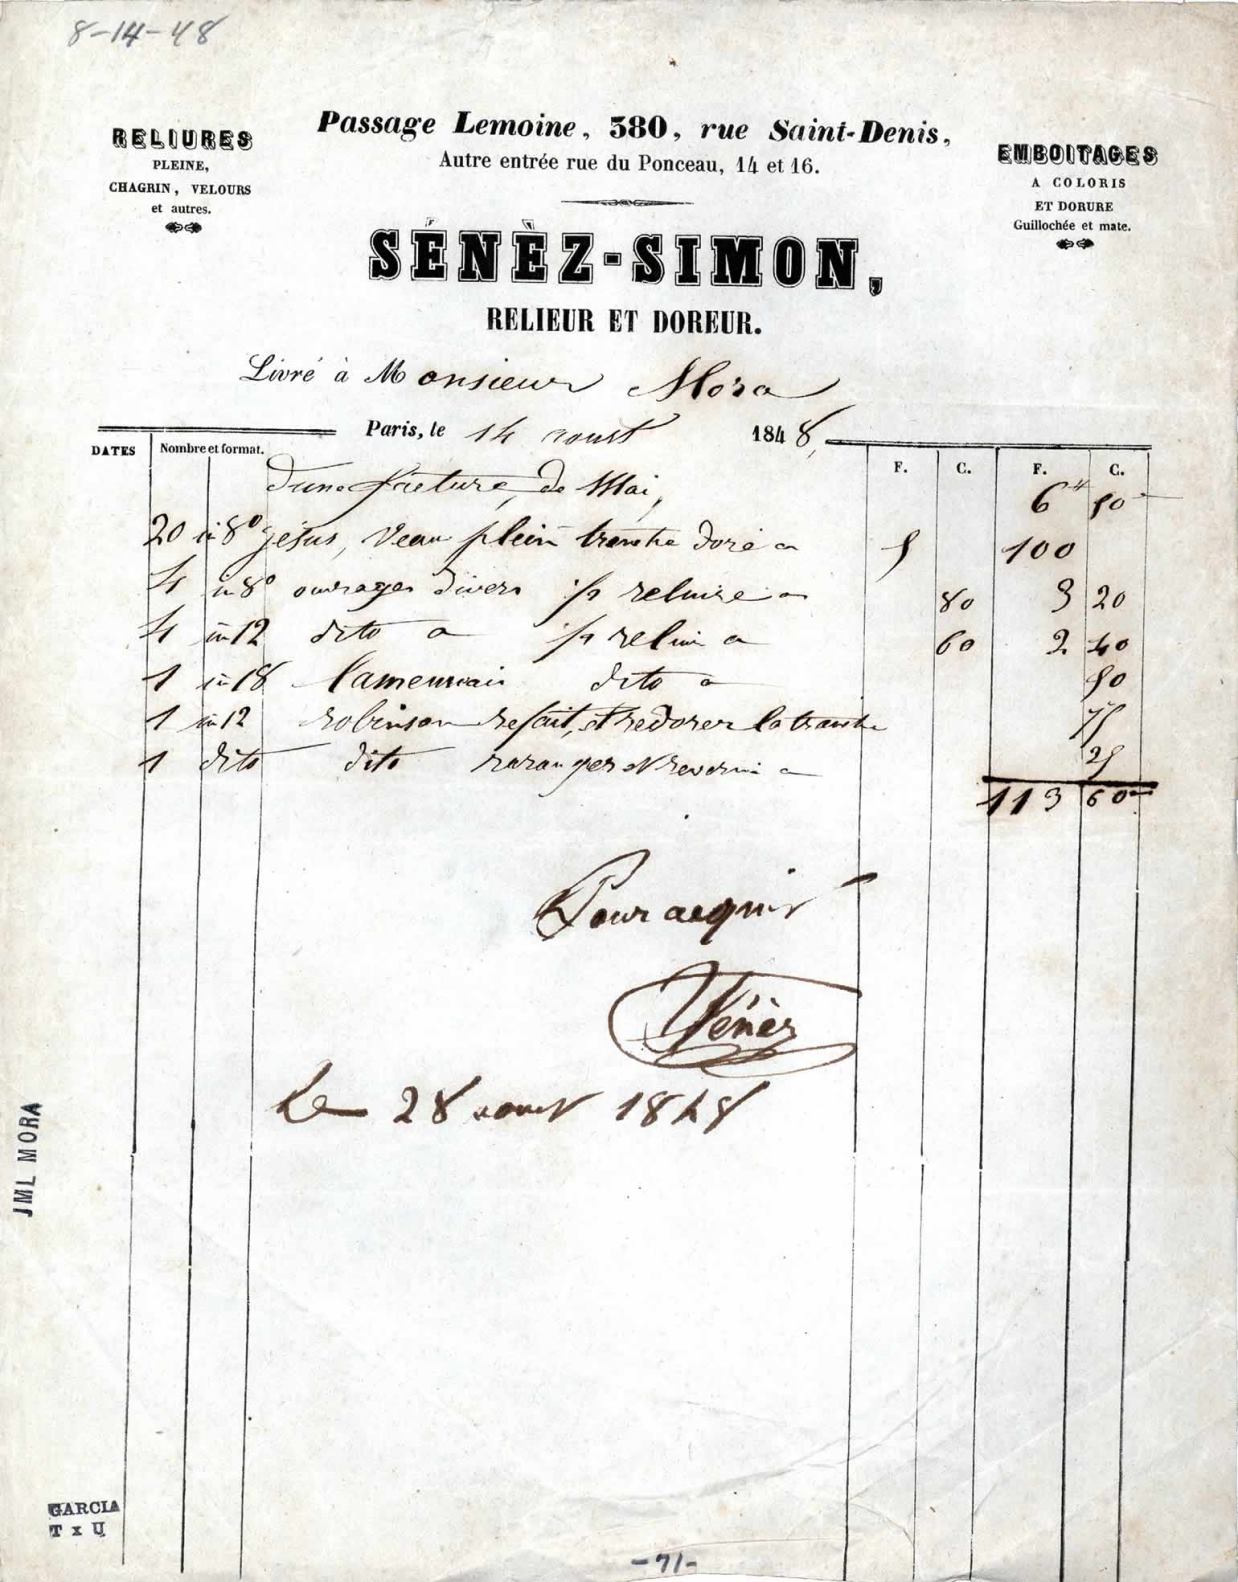 8-14-48
RELIURES
PLEINE,
CHAGRIN, VELOURS
et autres.
Passage Lemoine, 380, rue Saint-Denis,
Autre entrée rue du Ponceau, 14 et 16.
EMBOITAGES
A COLORIS
ET DORURE
Guillochée et mate.
SÉNÈZ-SIMON,
RELIEUR ET DOREUR.
Livré à Monsieur Mora
Paris, le 14 aoust 1848,
DATES Nombre et format. F. C. F. C.
d'une facture, de Mai, 6 50
20 in 8° jésus, Veau plein tranche doré a 5 100
4 in 8° ouvrages divers p reluire a 80 3 20
4 in 12 dito a p relui a 60 2 40
1 in 18 dito a 50
1 in 12 robinson refait, et redorer la tranche 75
1 dito dito et a 25
113 60
Pour acquit
Sénèz
Le 28 aout 1848
JML MORA
GARCIA
T x U
-71-